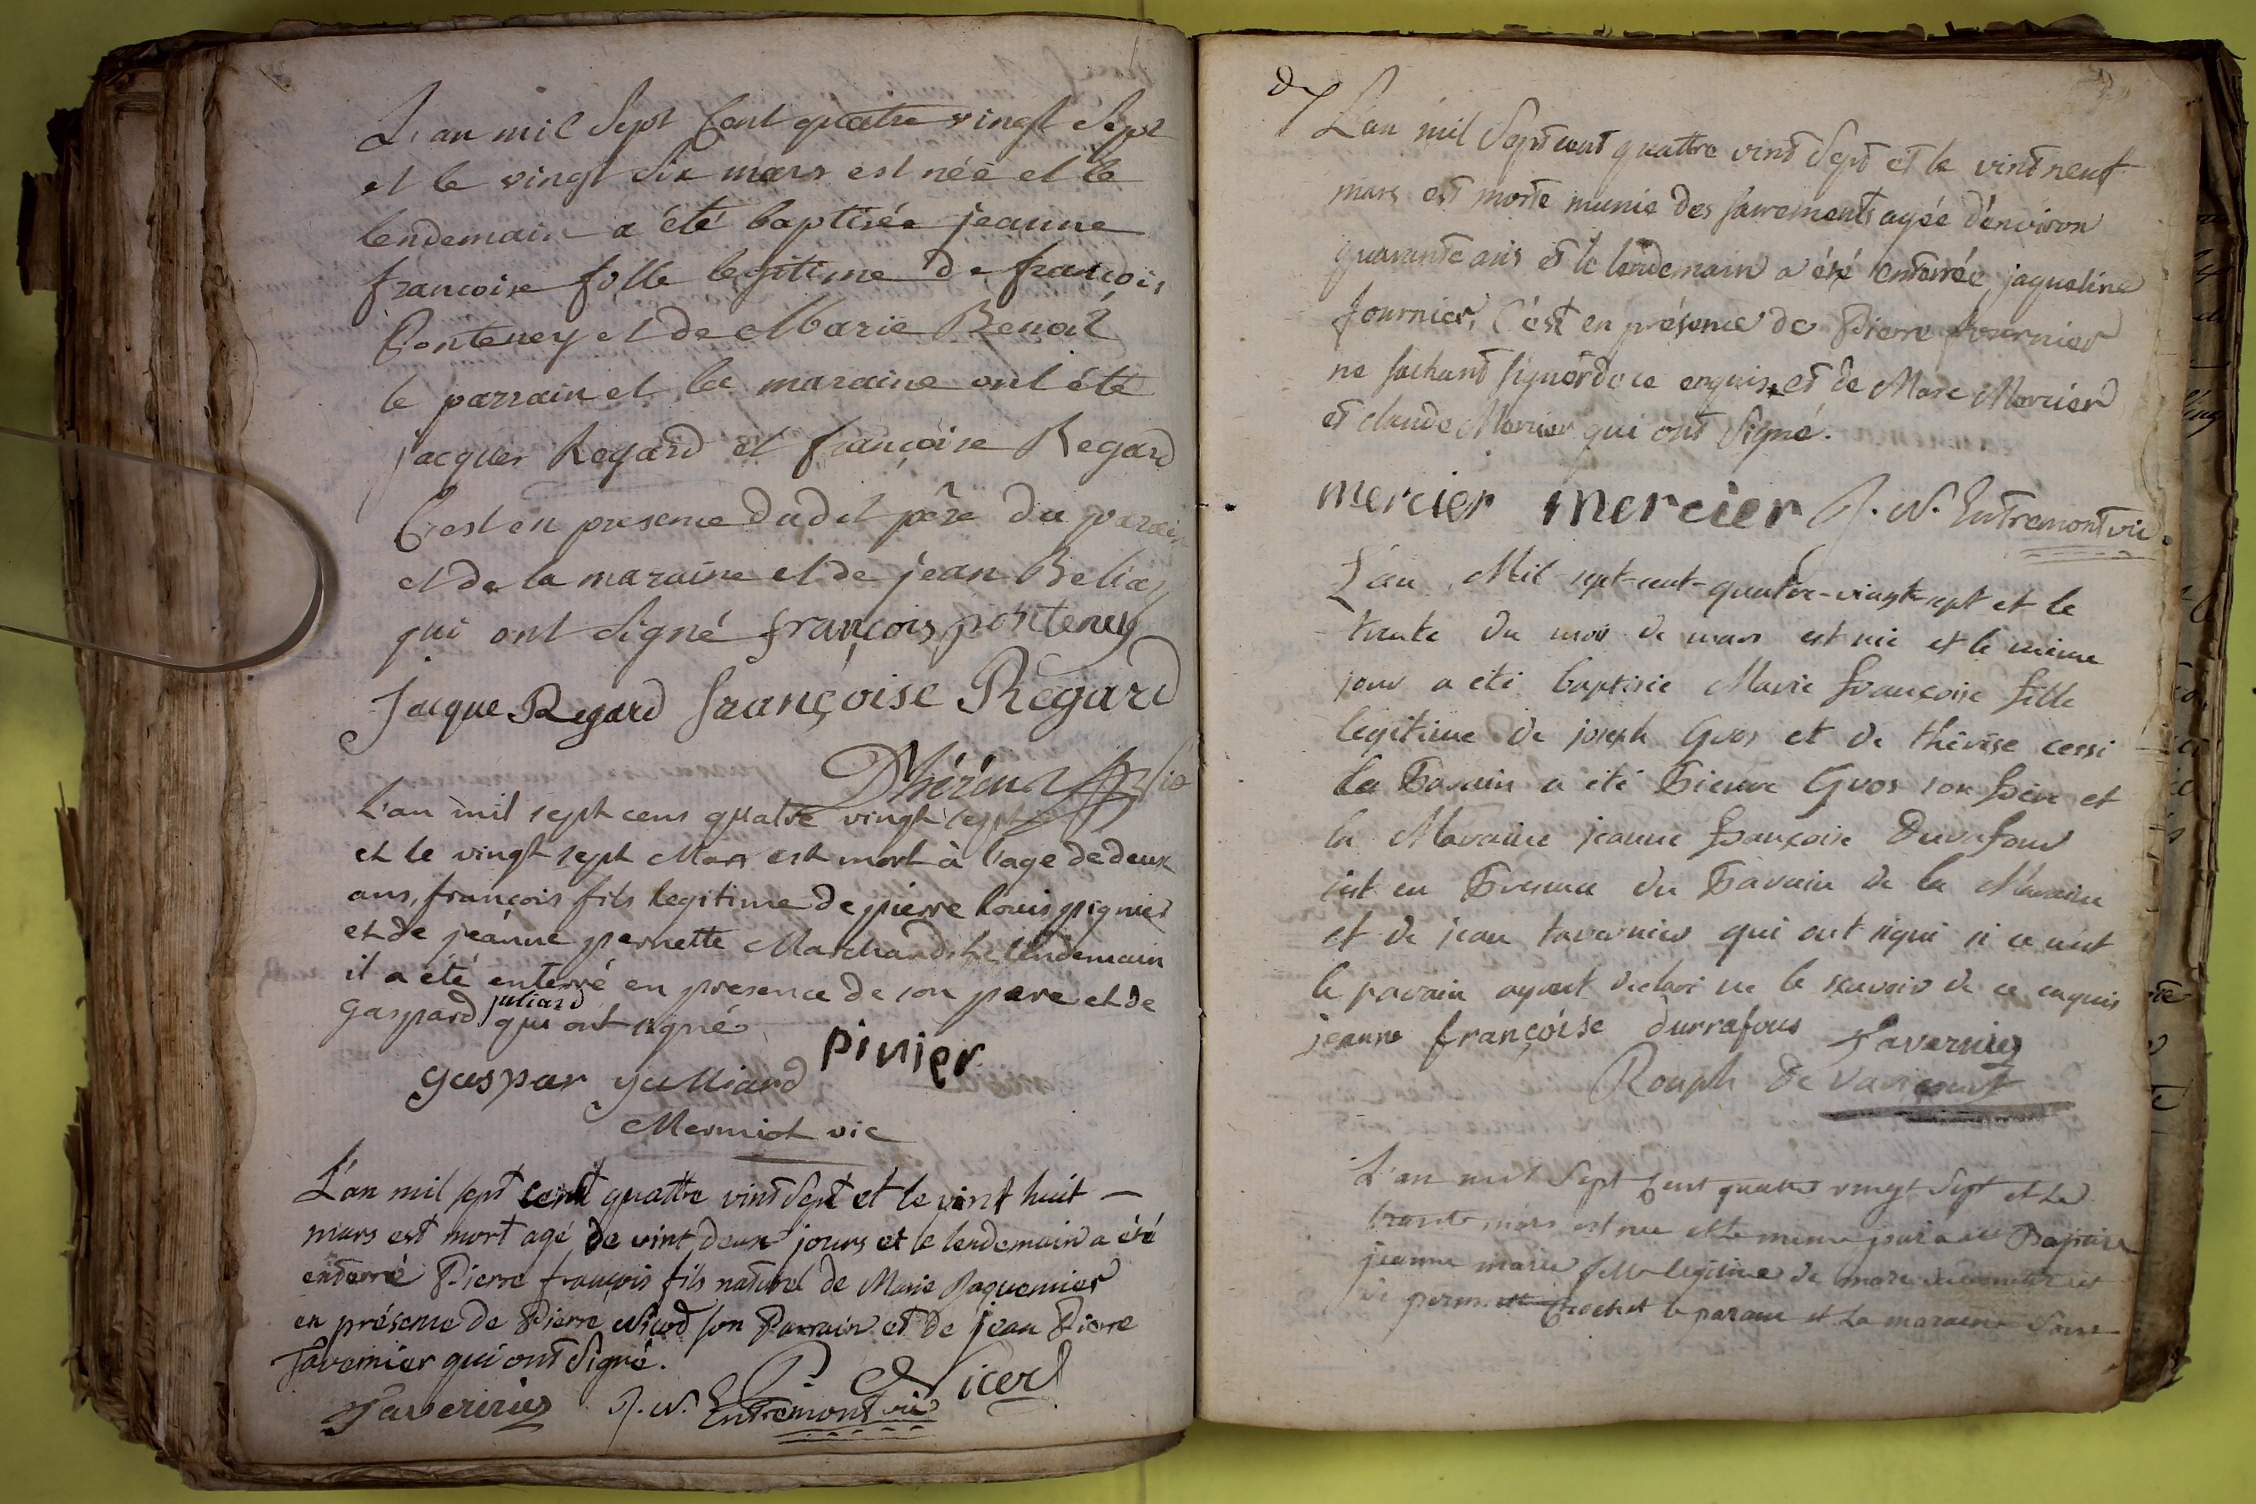 L'an mil sept Cent quatre vingt sept
et le vingt six mars est née et le
lendemain a été baptisée jeanne
francoise fille legitime de françois
Ponteney et de Marie Benoit
le parrain et la maraine ont été
jacques Regard et françoise Regard
C'est en presence dudit père du parain
et de la maraine et de jean
qui ont signé françois ponteney
Jacque Regard françoise Regard
L'an mil sept cens quatre vingt sept
et le vingt sept Mars est mort à l'age de deux
ans, françois fils legitime de pierre louis pignier
et de jeánne pernette Marchand, le lendemain
il a été enterré en presence de son pere et de
gaspard juliard qui ont signé
pinier
gaspar julliard
Mermiot vic
L'an mil sept cent quattre vint sept et le vint huit —
mars est mort agé de vint deux jours et le lendemain a été
enterré Pierre françois fils naturel de Marie Paquemier
en présence de Pierre Nicod son Parrain et de jean Pierre
Tavernier qui ont signé.
P. Nicod
Tavernier J. N. Entremont vic
L'an mil sept cent quattre vint sept et le vint neuf
mars est morte munie des sacrements agée d'environ
quarante ans et le lendemain a été enterrée jaqueline
fournier, C'est en présence de Pierre fournier
ne sachant signer de ce enquis, et de Marc Mercier
et claude Mercier qui ont signé.
mercier mercier J. N. Entremont vic.
L'an Mil-sept-cent-quatre-vingt-sept et le
trente du mois de mars est née et le même
jour a été baptisée Marie françoise fille
legitime de joseph Gros et de thérèse cessi
Le Parain a été Pierre Gros son frère et
la Maraine jeanne françoise Durafour
c'est en Presence du Parain de la Maraine
et de jean tavernier qui ont signé si ce n'est
le parain ayant declaré ne le scavoir de ce enquis
jeanne françoise durrafour Tavernier
Rouph de Varicourt
L'an mil sept Cent quatre vingt sept et le
trante mars est née et le meme jour a été Baptisée
jeanne marie fille legitime de marc et
le parain et la maraine sont